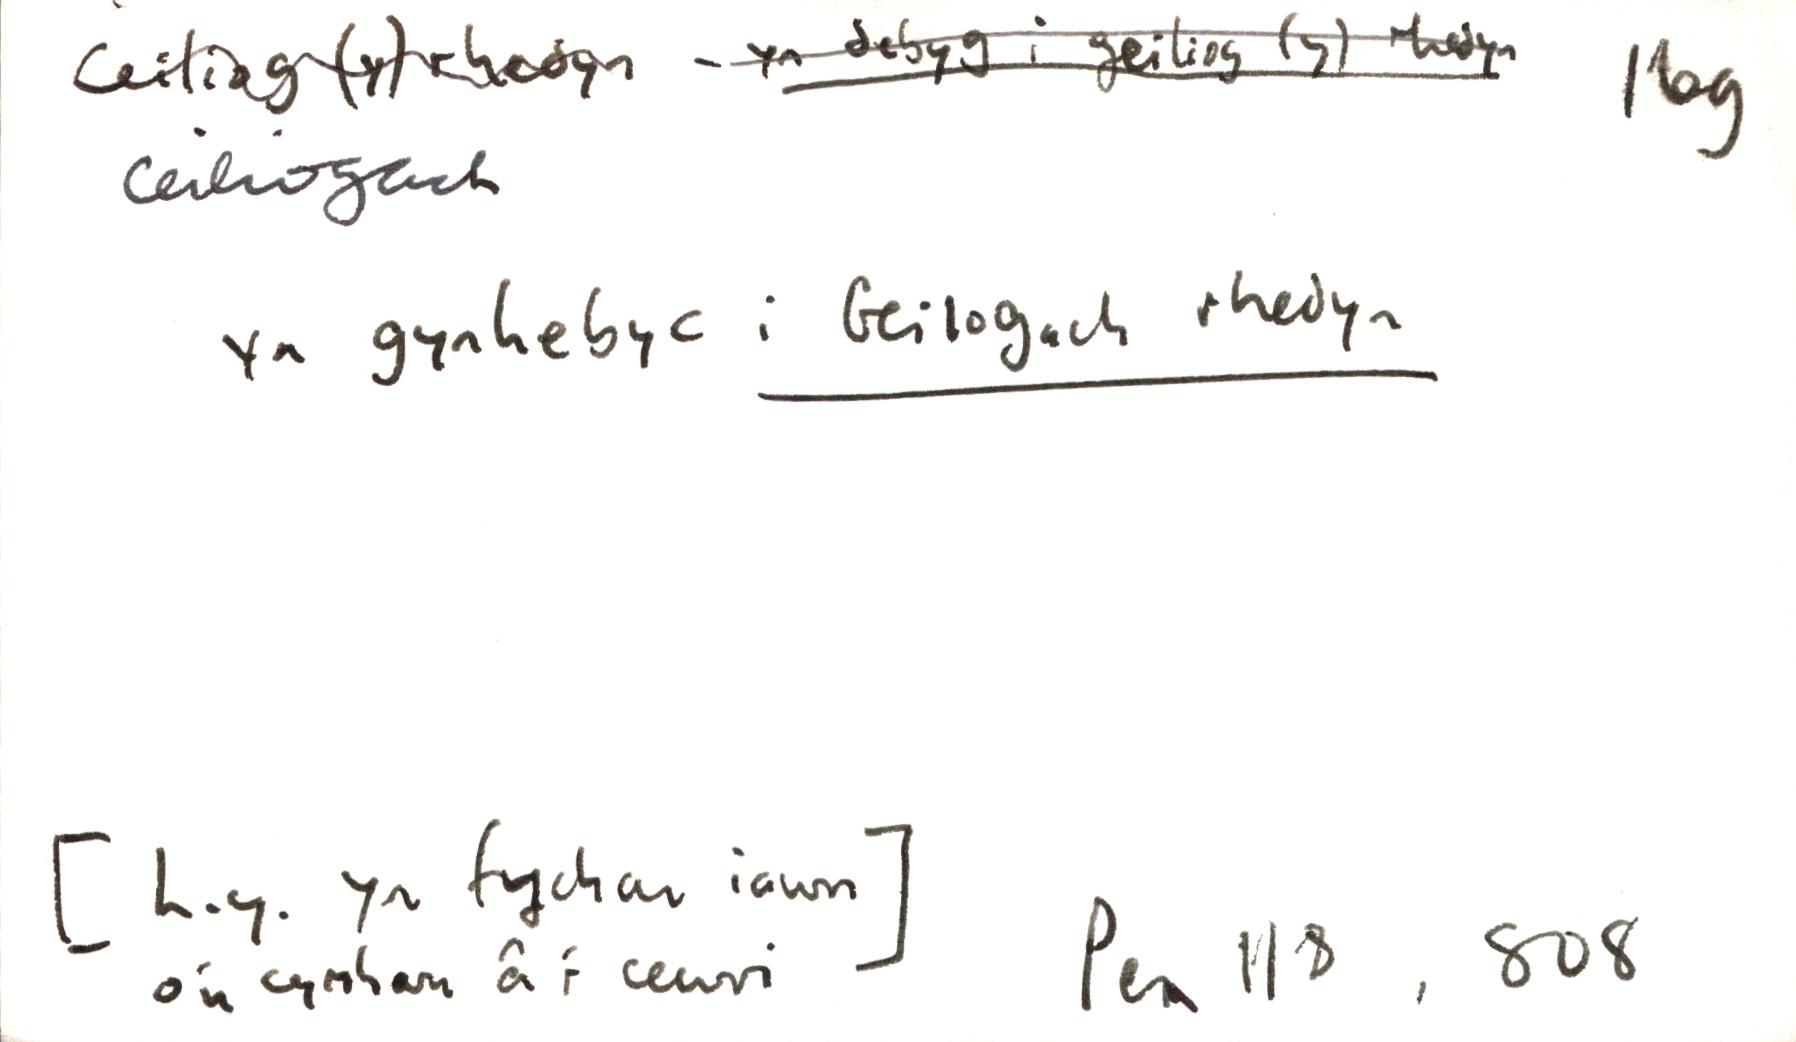 Ceiliog (y) rhedyn - yn debyg i geiliog (y) rhedyn 16g
ceiliogach
yn gynhebyc i Geilogach rhedyn
[h.y. yn fychan iawn]
o'u cymharu â'r cewri
Pen 118, 808